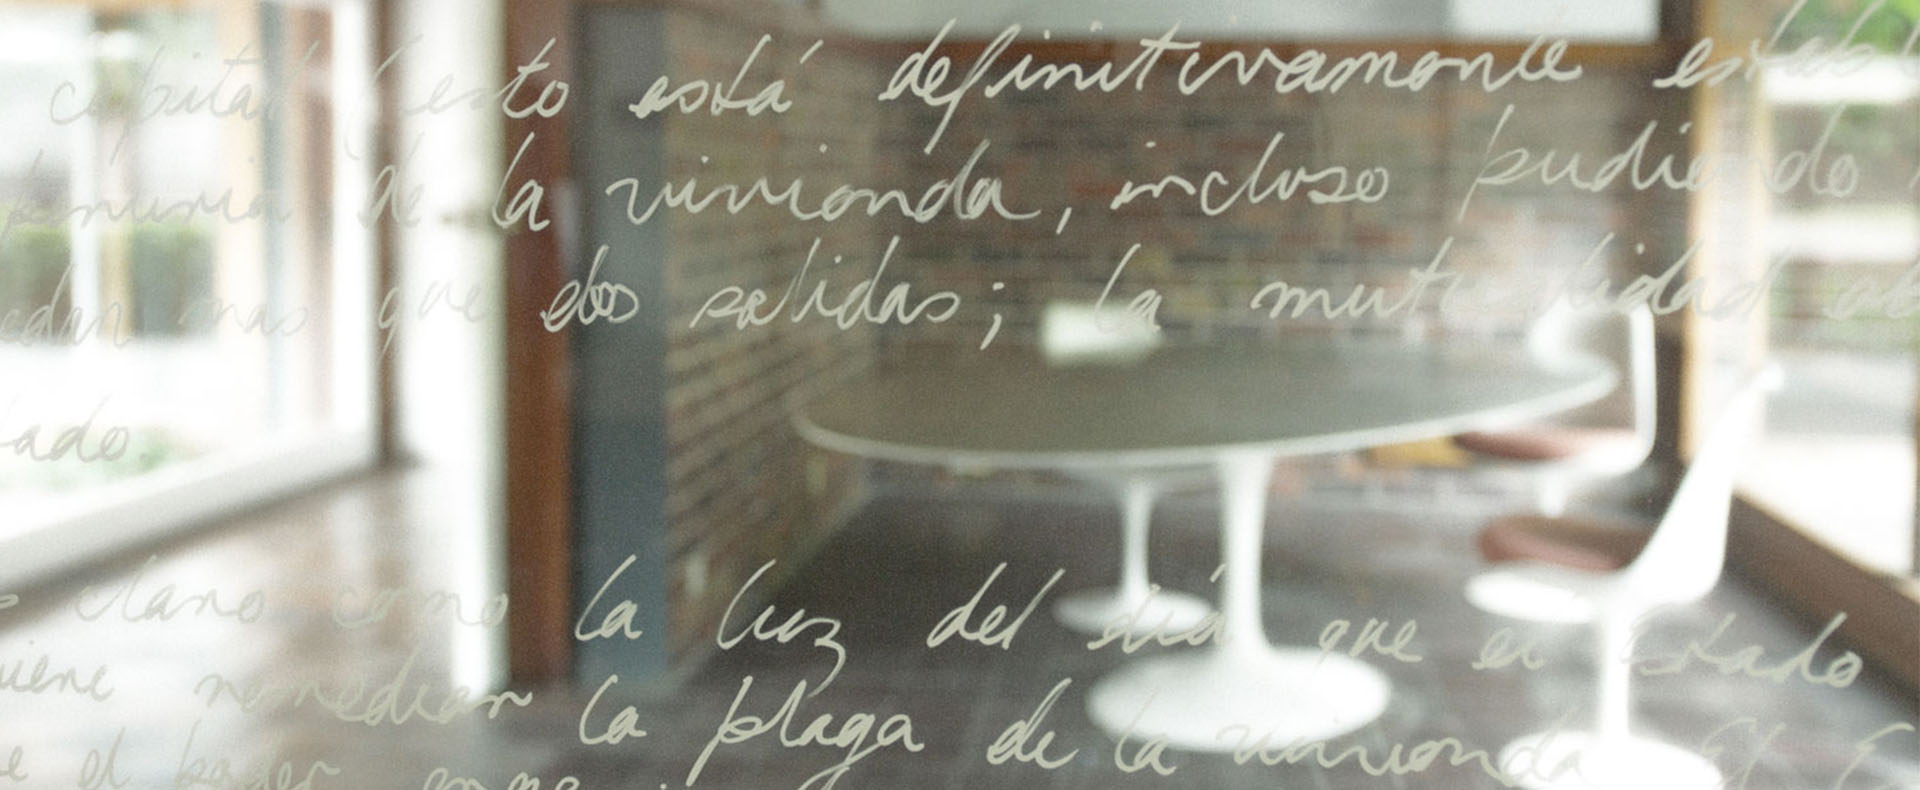 capital (esto está definitivamente estab
penuria de la vivienda, incluso pudiendo
edan mas que dos salidas; la mutualidad ob
tado
claro como la luz del día que el Estado
uiene remediar la plaga de la vivienda El E
e el poder